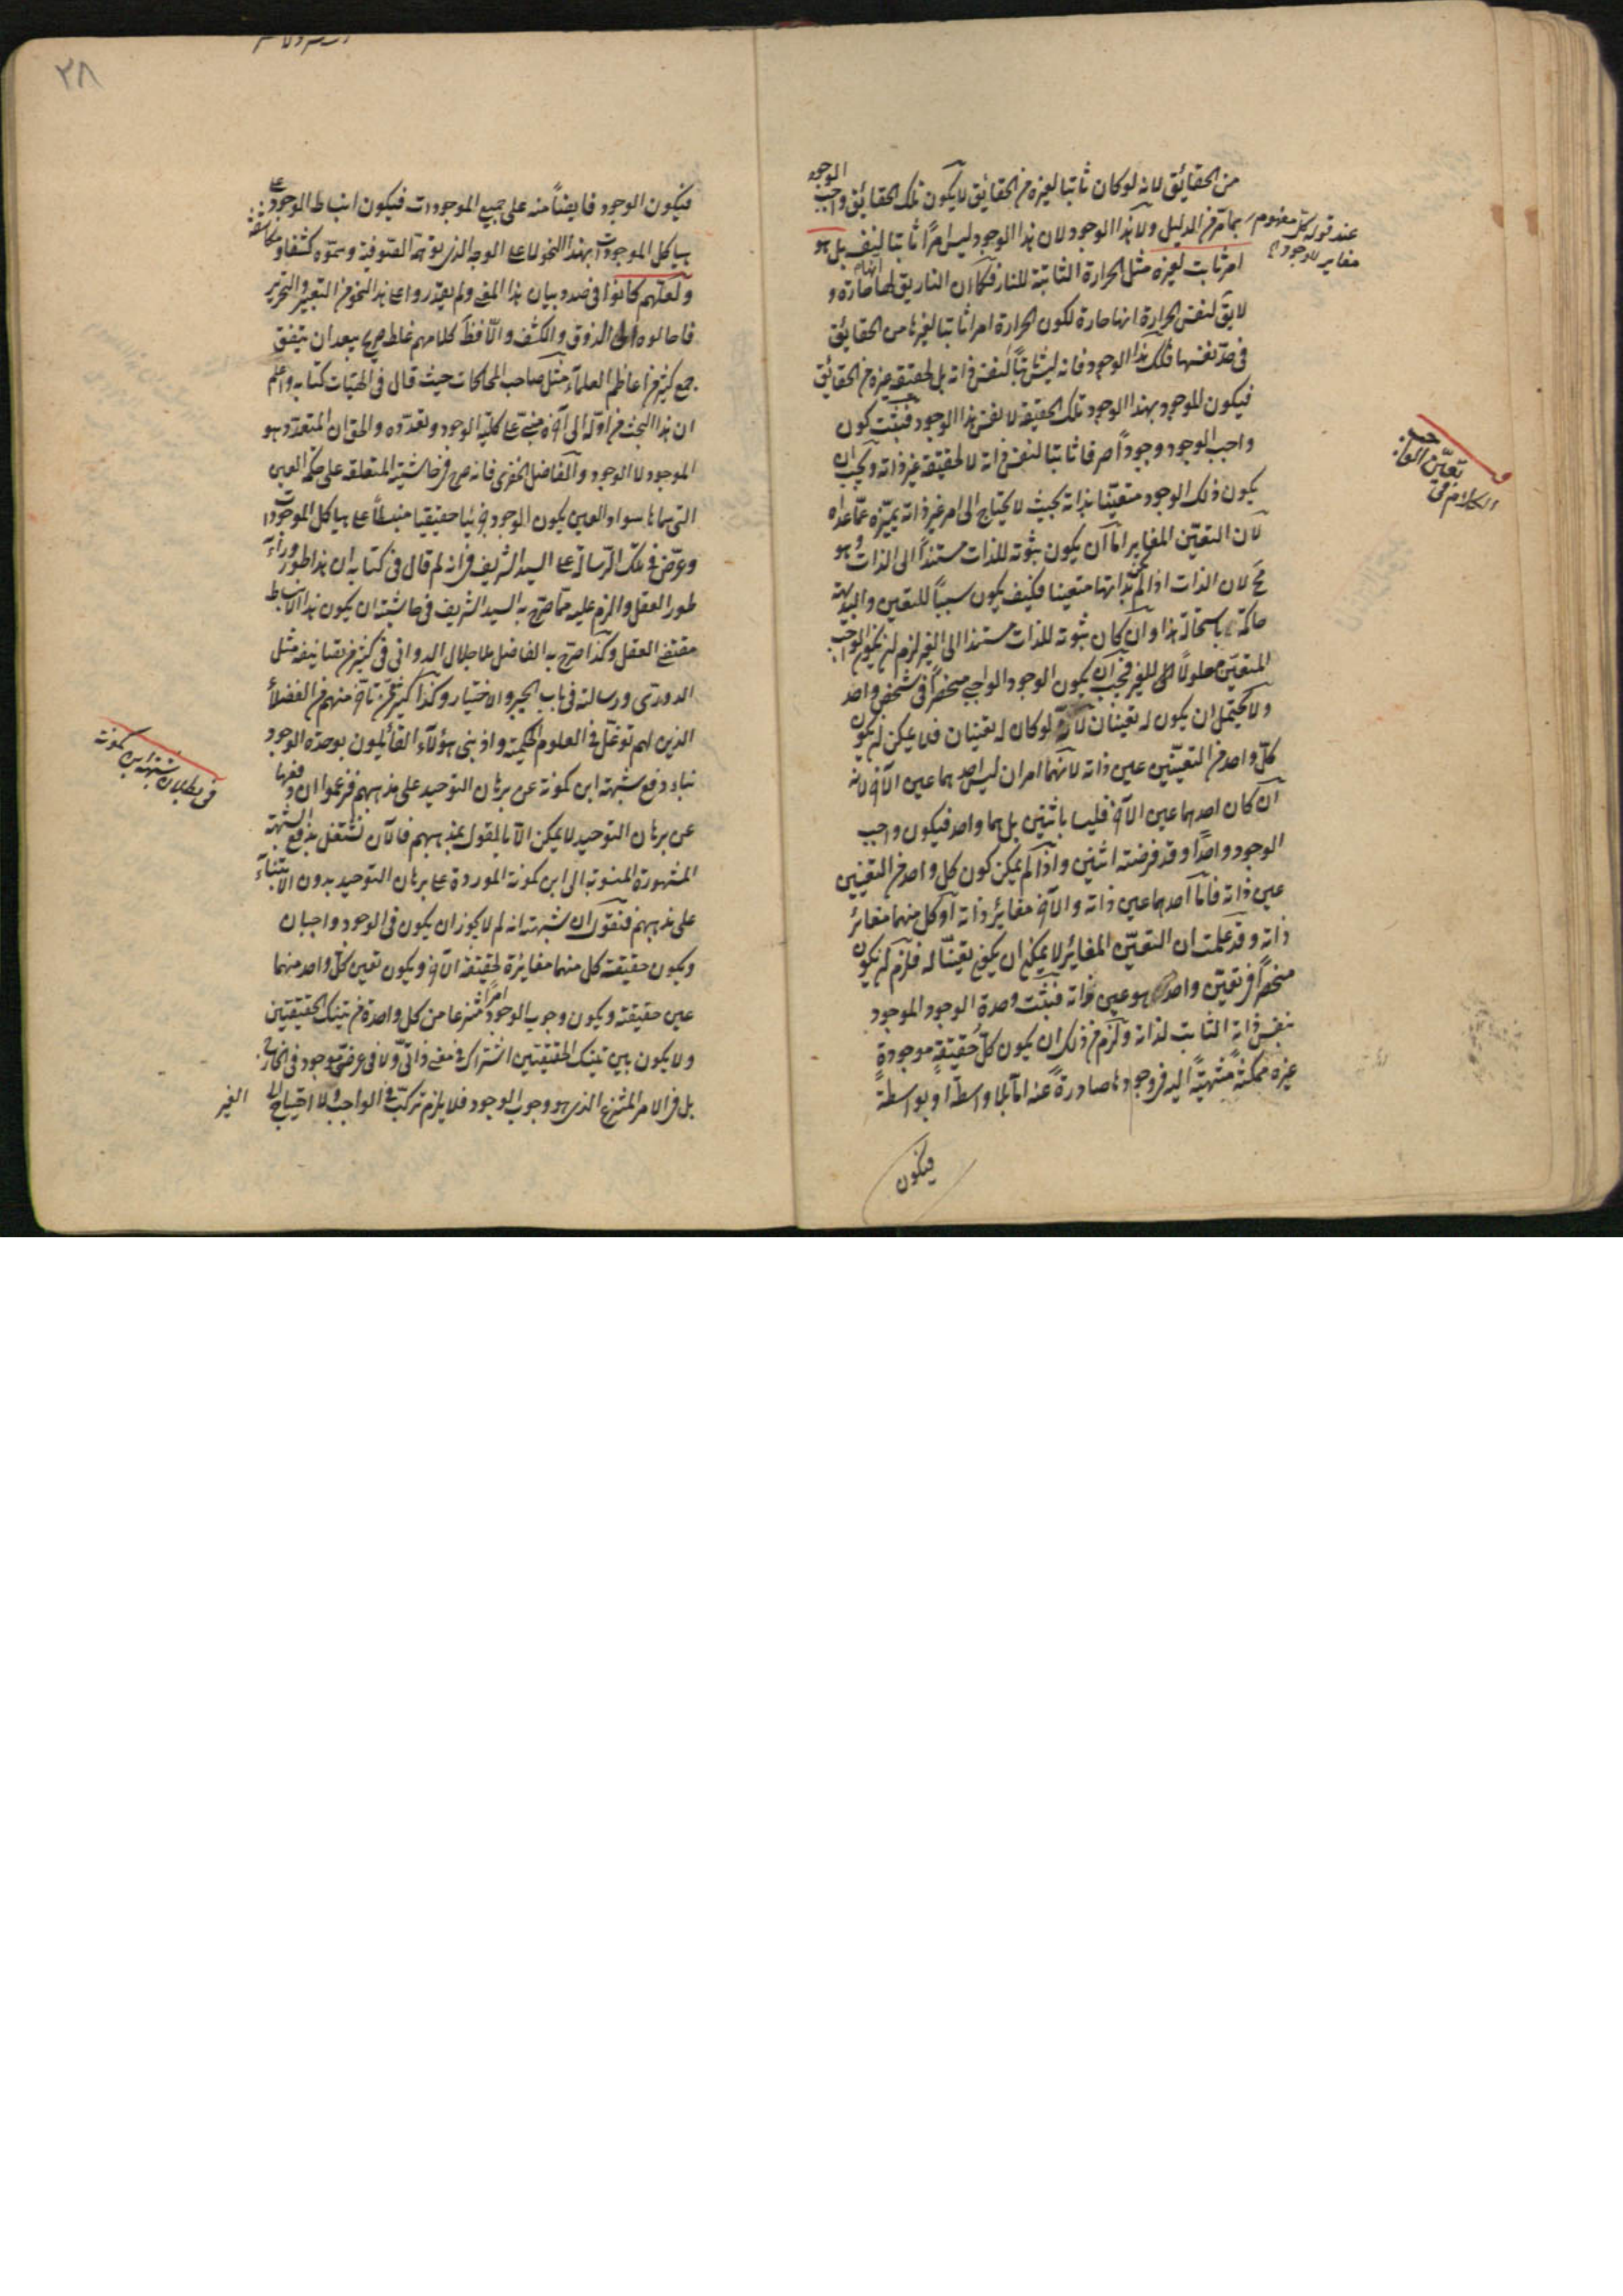 من الحقائق لانه لو كان ثابتا لغيره من الحقايق لا يكون تلك الحقائق واجب الوجود
بما مر من الدليل ولا هذا الوجود لان هذا الوجود ليس امرًا ثابتا لنفسه بل هو
امر ثابت لغيره مثل الحرارة الثابتة للنار فكما ان النار يق لها انها حارة و
لا يق لنفس الحرارة انها حارة لكون الحرارة امرا ثابتا لغيرها من الحقايق
في حد نفسها فكك هذا الوجود فانه ليس ثابتًا لنفس ذاته بل لحقيقة غيره من الحقائق
فيكون الموجود بهذا الوجود تلك الحقيقة لا نفس هذا الوجود فثبت كون
واجب الوجود وجودًا صرفا ثابتا لنفس ذاته لا لحقيقة غير ذاته ويجب ان
يكون ذلك الوجود متعينا بذاته بحيث لا يحتاج الى امر غير ذاته يميزه عما عداه
لان التعين المغاير اما ان يكون ثبوته للذات مستندًا الى الذات وهو
مح لان الذات اذا لم يكن بذاتها متعينا فكيف يكون سببًا للتعين والبديهة
حاكمة باستحالة هذا وان كان ثبوته للذات مستندا الى الغير لزم ان يكون الواجب
المتعين معلولًا للغير فيجب ان يكون الوجود الواجبي منحصرًا في شخص واحد
ولا يحتمل ان يكون له تعينان لانه لو كان له تعينان فلا يمكن ان يكون
كل واحد من التعينين عين ذاته لانهما امران ليس احدهما عين الآخر لانه
ان كان احدهما عين الآخر فليسا باثنين بل هما واحد فيكون واجب
الوجود واحدًا وقد فرضته اثنين واذا لم يمكن كون كل واحد من التعينين
عين ذاته فاما احدهما عين ذاته والآخر مغاير ذاته او كل منهما مغائر
ذاته وقد علمت ان التعين المغائر لا يمكن ان يكون تعينًا له فلزم ان يكون
منحصرًا في تعين واحد هو عين ذاته فثبت وحدة الوجود الموجود
بنفس ذاته الثابت لذاته ولزم من ذلك ان يكون كل حقيقةٍ موجودةٍ
غيره ممكنةً منتهيةً اليه في وجودها صادرةً عنه اما بلا واسطة او بواسطة
فيكون
عند قوله كل مفهوم
مغاير للوجود
الكلام في
تعين الواجب
٢٨
فيكون الوجود فايضًا منه على جميع الموجودات فيكون انبساط الوجود على
هياكل الموجودات بهذا النحو لا على الوجه الذي توهمه الصوفية وسموه كشفا ومكاشفة
ولعلهم كانوا في صدد بيان هذا المعنى ولم يقدروا على هذا النحو من التعبير والتحرير
فاحالوه الى الذوق والكشف والا فظ كلامهم غلط صريح يبعد ان يتفق
جمع كثير من اعاظم العلماء مثل صاحب المحاكمات حيث قال في الهيات كتابه واعلم
ان هذا البحث من اوله الى آخره مبني على كلية الوجود وتعدده والحق ان المتعدد هو
الموجود لا الوجود والفاضل الخفري فانه صرح في حاشيته المتعلقة على حكمة العين
التي سماها سواد العين يكون الوجود جزئيا حقيقيا منبسطًا على هياكل الموجودات
وعرّض في تلك الرسالة على السيد الشريف في انه لم قال في كتابه ان هذا طور وراء
طور العقل والزم عليه مما صرح به السيد الشريف في حاشيته ان يكون هذا الانبساط
مقتضى العقل وكذا صرح به الفاضل ملا جلال الدواني في كثير من تصانيفه مثل
الدورتي ورسالته في باب الجبر والاختيار وكذا كثير من تاخر منهم من الفضلاء
الذين لهم توغل في العلوم الحكمية واذ بنى هؤلاء القائلون بوحدة الوجود
بناء دفع شبهة ابن كمونة عن برهان التوحيد على مذهبهم فزعموا ان دفعها
عن برهان التوحيد لا يمكن الا بالقول بمذهبهم فالآن نشتغل بدفع الشبهة
المشهورة المنسوبة الى ابن كمونة الموردة على برهان التوحيد بدون الابتناء
على مذهبهم فنقول ان شبهته انه لم لا يجوز ان يكون في الوجود واجبان
ويكون حقيقة كل منهما مغايرة لحقيقة الآخر ويكون تعين كل واحد منهما
عين حقيقته ويكون وجوب الوجود امرًا منتزعا من كل واحدة من تينك الحقيقتين
ولا يكون بين تينك الحقيقتين اشتراك في معنى ذاتي ولا في عرضي موجود في الخارج
بل في الامر المنتزع الذي هو وجوب الوجود فلا يلزم تركب في الواجب ولا احتياج الى الغير
في بطلان شبهة ابن كمونة